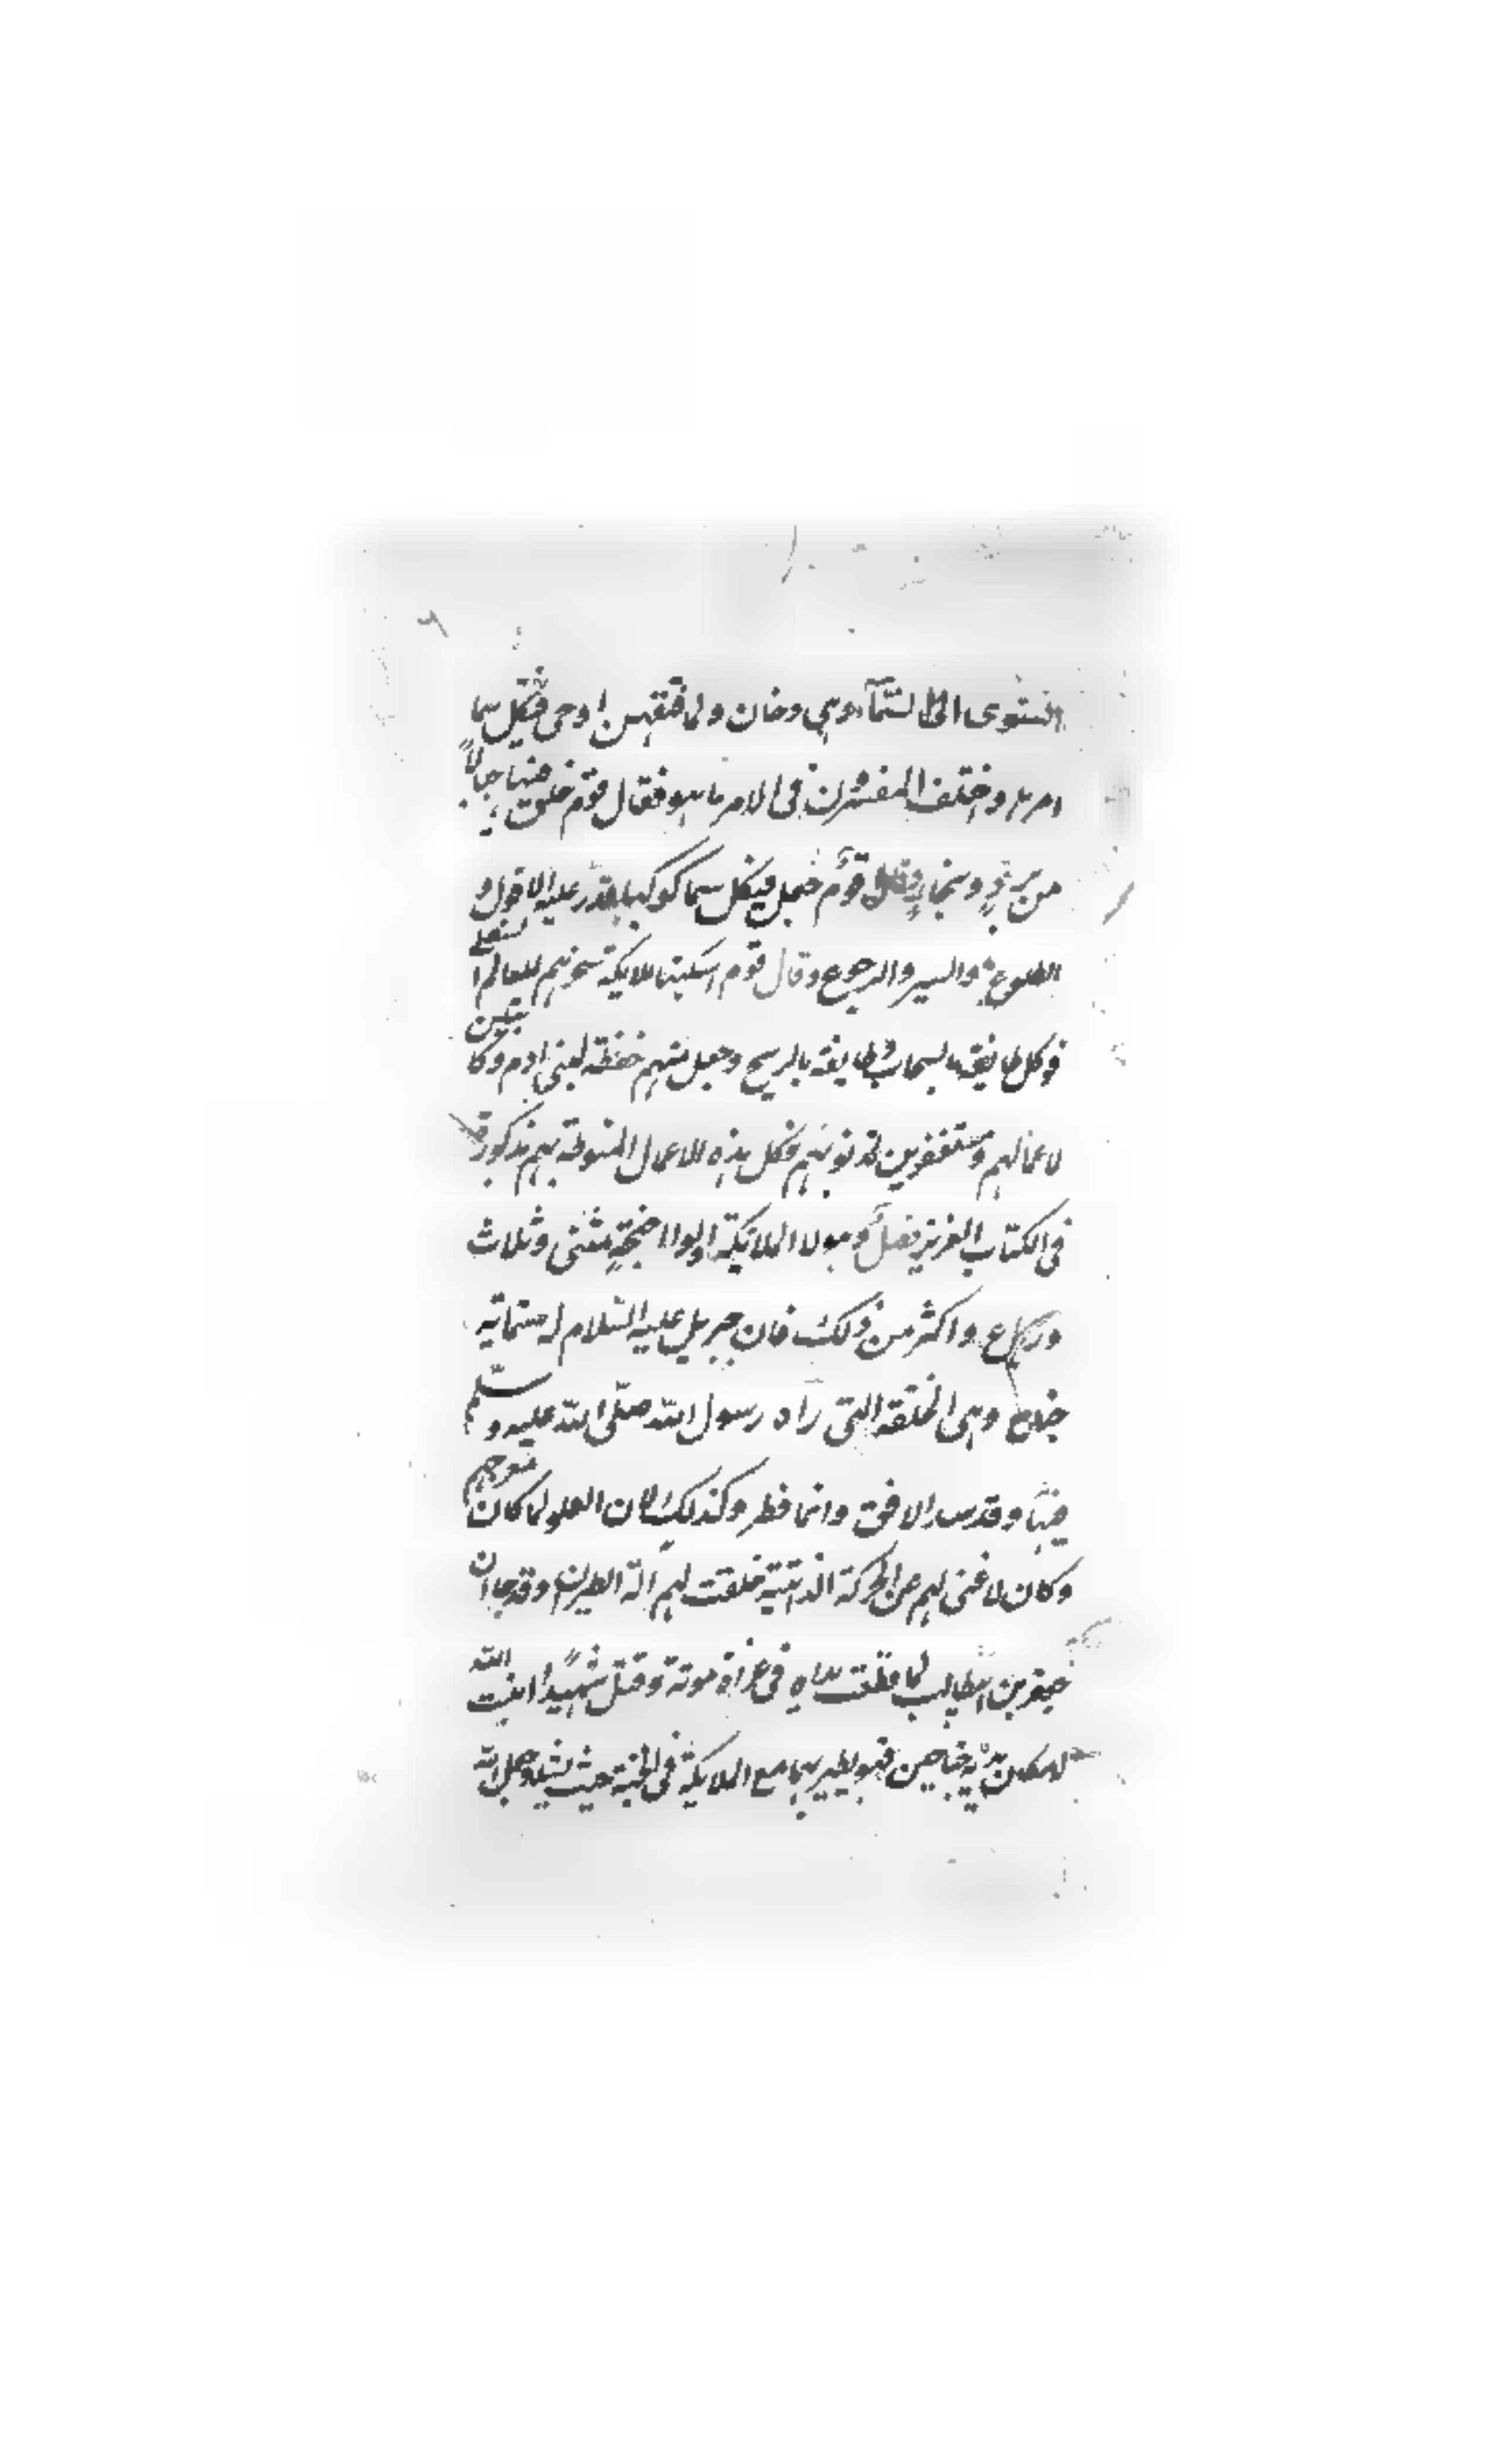 استوى الى السمآء وهي دخان ولما فتقهن اوحى في كل سما
امرها واختلف المفسرون في الامر ما هو فقال قوم خلق فيها جبالاً
من برد وبخار وقال قوم جعل في كل سما كوكبا قدر عليه الافول و
الطلوع والسير والرجوع وقال قوم اسكنها ملايكة تسخرهم للعالم السفلي
فوكل طايفة بالسحاب وطايفة بالريح وجعل منهم حفظة لبني ادم وكاتبين
لاعمالهم ومستغفرين لذنوبهم فكل هذه الاعمال المنوطة بهم مذكورة
في الكتاب العزيز وهولا الملايكة اولوا اجنحةٍ مثنى وثلاث
ورباع واكثر من ذلك فان جبريل عليه السلام له ستماية
جناح وهي الخلقة التي راه رسول الله صلّى الله عليه وسلّم
فيها وقد سد الافق وانما فطر وكذلك لان العلو لما كان
وكان لا غنى لهم عن الحركة الذاتية خلقت لهم الة الطيران وقد جا ان
جعفر بن ابي طالب لما قطعت يداه في غزاة موتة وقتل شهيدًا انبت الله
له مكان يديه جناحين فهو يطير بهما مع الملايكة في الجنة حيث يشا وجعل الله